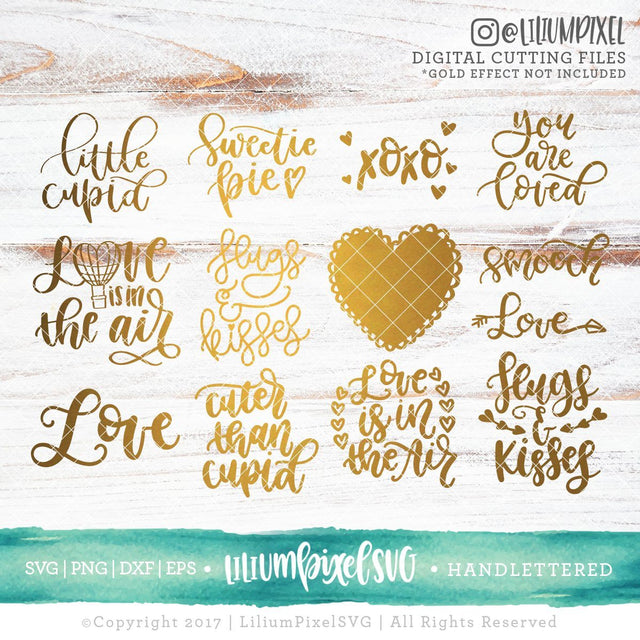 @LILIUMPIXEL
DIGITAL CUTTING FILES
*GOLD EFFECT NOT INCLUDED
little
cupid
Sweetie
pie
xoxo
you
are
loved
Love
is in
the air
Hugs
&
kisses
smooch
Love
Love
cuter
than
cupid
Love
is in
the Air
Hugs
&
Kisses
SVG | PNG | DXF | EPS • LILIUMPixelSVG • HANDLETTERED
©Copyright 2017 | LiliumPixelSVG | All Rights Reserved